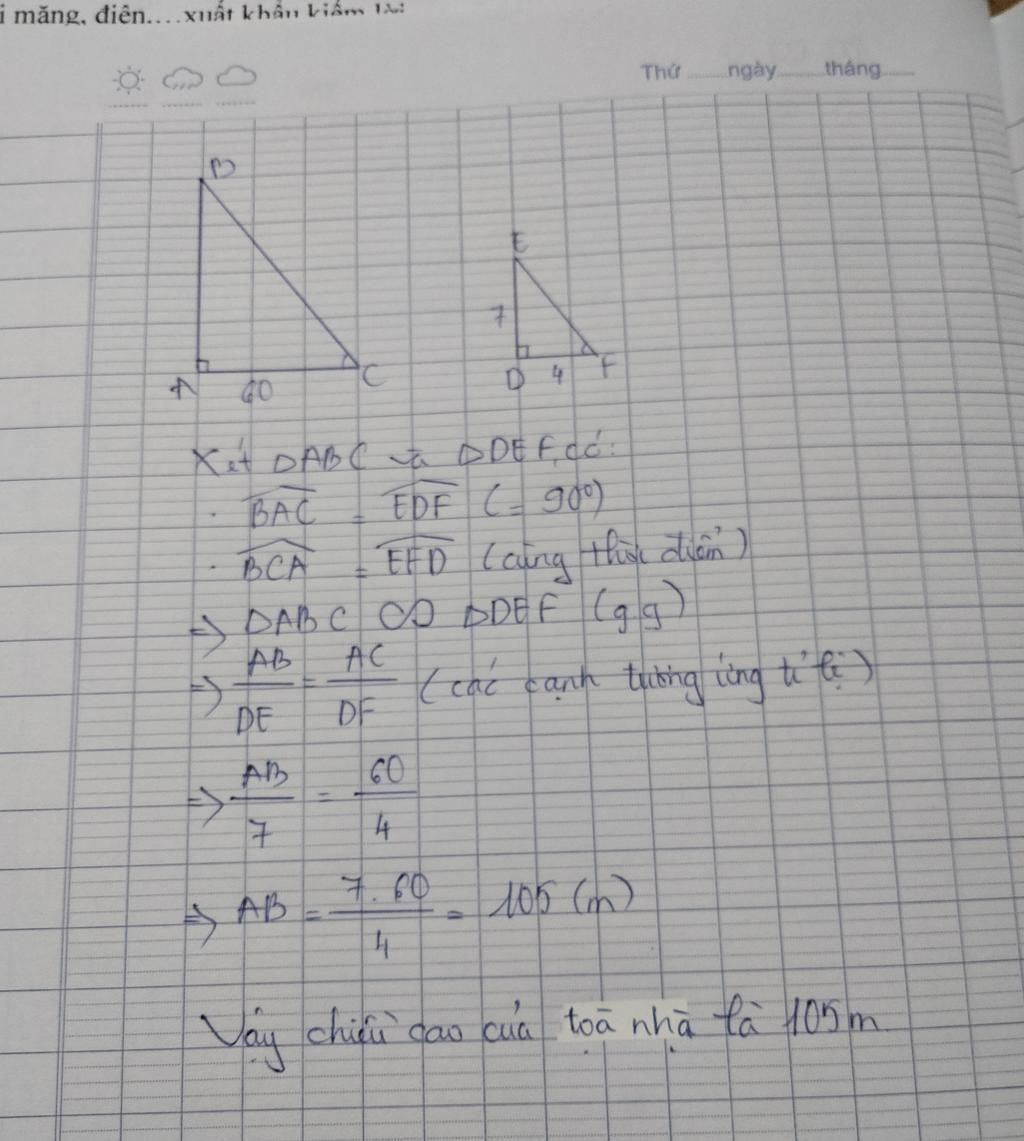 i măng, điện....xuất khẩu kiếm lời
Thứ ........ ngày ........ tháng ........
B
E
7
A
60
C
D
4
F
Xét ΔABC và ΔDEF, có:
· \widehat{BAC} = \widehat{EDF} (= 90⁰)
· \widehat{BCA} = \widehat{EFD} (cùng thời điểm)
=> ΔABC ∽ ΔDEF (g.g)
=> AB/DE = AC/DF (các cạnh tương ứng tỉ lệ)
=> AB/7 = 60/4
=> AB = 7.60/4 = 105 (m)
Vậy chiều cao của toà nhà là 105m